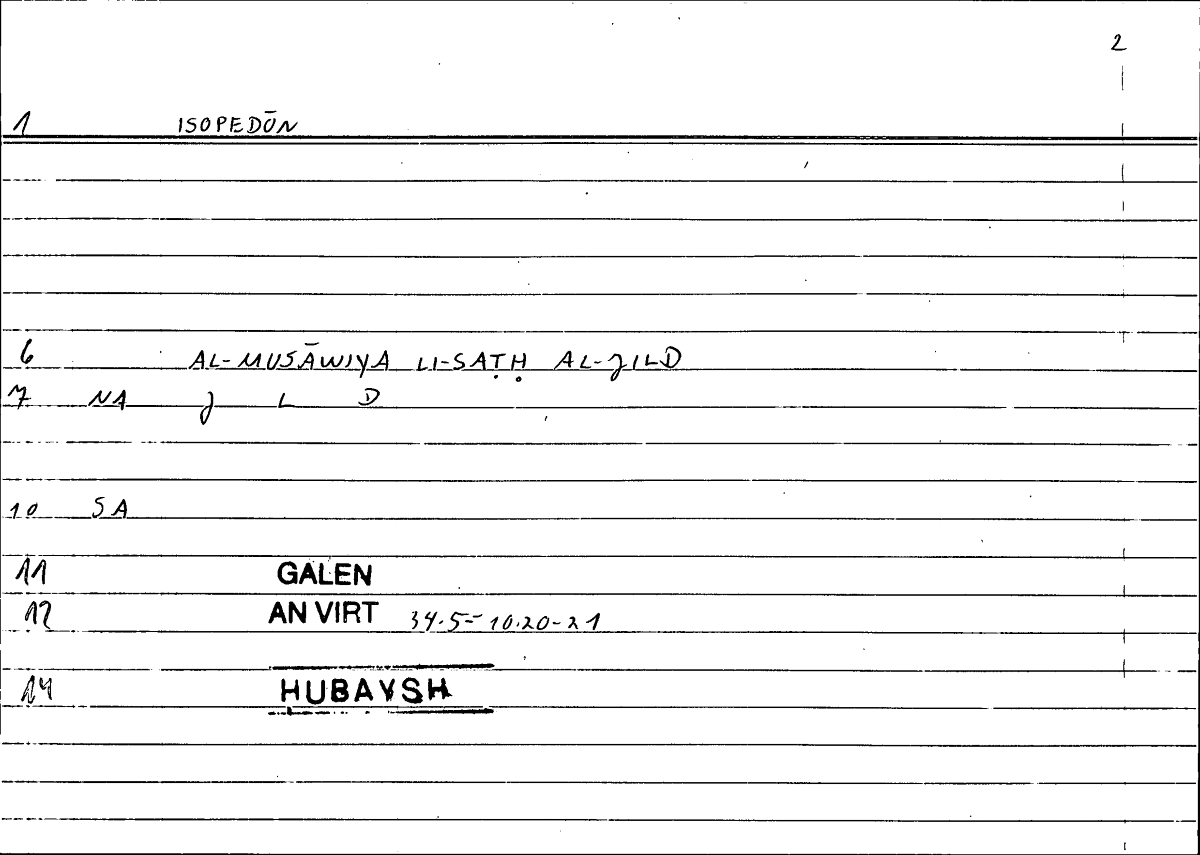 2
1 ISOPEDŌN
6 AL-MUSĀWIYA LI-SAṬḤ AL-JILD
7 NA J L D
10 SA
11 GALEN
12 AN VIRT 34.5=10.20-21
14 HUBAYSH